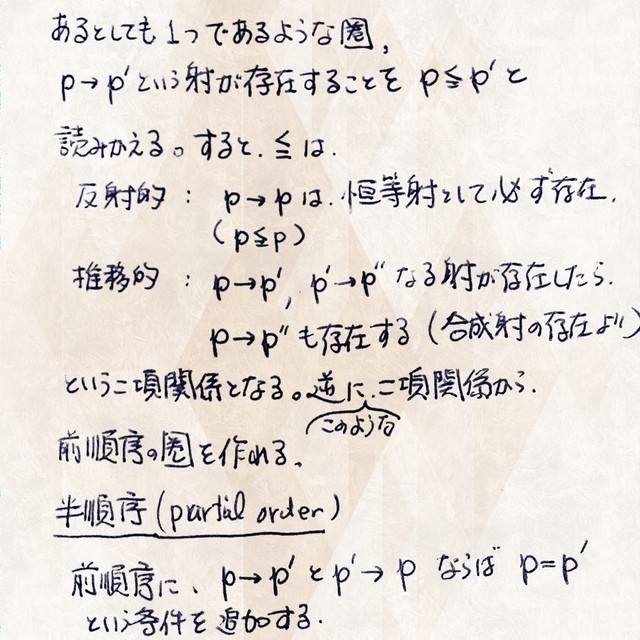 あるとしても1つであるような圏,
p→p'という射が存在することを p≦p' と
読みかえる。すると、≦は、
反射的 : p→p は、恒等射として必ず存在.
(p≦p)
推移的 : p→p', p'→p'' なる射が存在したら、
p→p'' も存在する (合成射の存在より)
という二項関係となる。逆に、二項関係から、
このような
前順序の圏を作れる、
半順序 (partial order)
前順序に、p→p' と p'→p ならば p=p'
という条件を追加する.